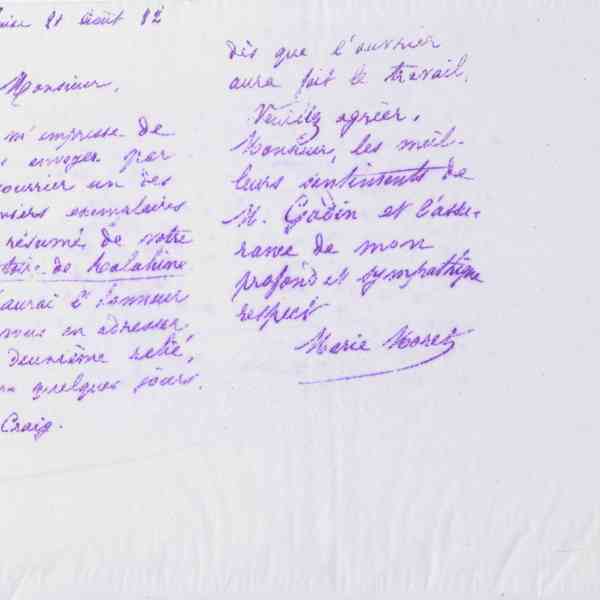 21 Août 82
Monsieur,
m'empresse de
envoyer par
courrier un des
exemplaires
résumé de votre
de Ralahine
aurai l'honneur
vous en adresser
deuxième relié,
quelques jours.
Craig.
dès que l'ouvrier
aura fait le travail.
Veuillez agréer,
Monsieur, les meil-
leurs sentiments de
M. Godin et l'assu-
rance de mon
profond et sympathique
respect
Marie Moret